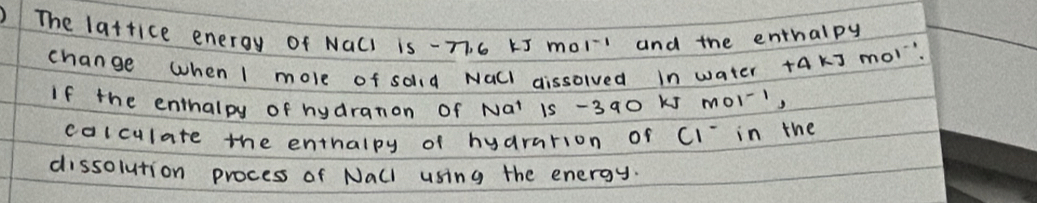 ) The lattice energy of NaCl is -77.6 kJ mol-¹ and the enthalpy
change when 1 mole of solid NaCl dissolved in water +4 kJ mol-¹.
If the enthalpy of hydration of Na⁺ is -390 kJ mol-¹,
calculate the enthalpy of hydration of Cl⁻ in the
dissolution process of NaCl using the energy.